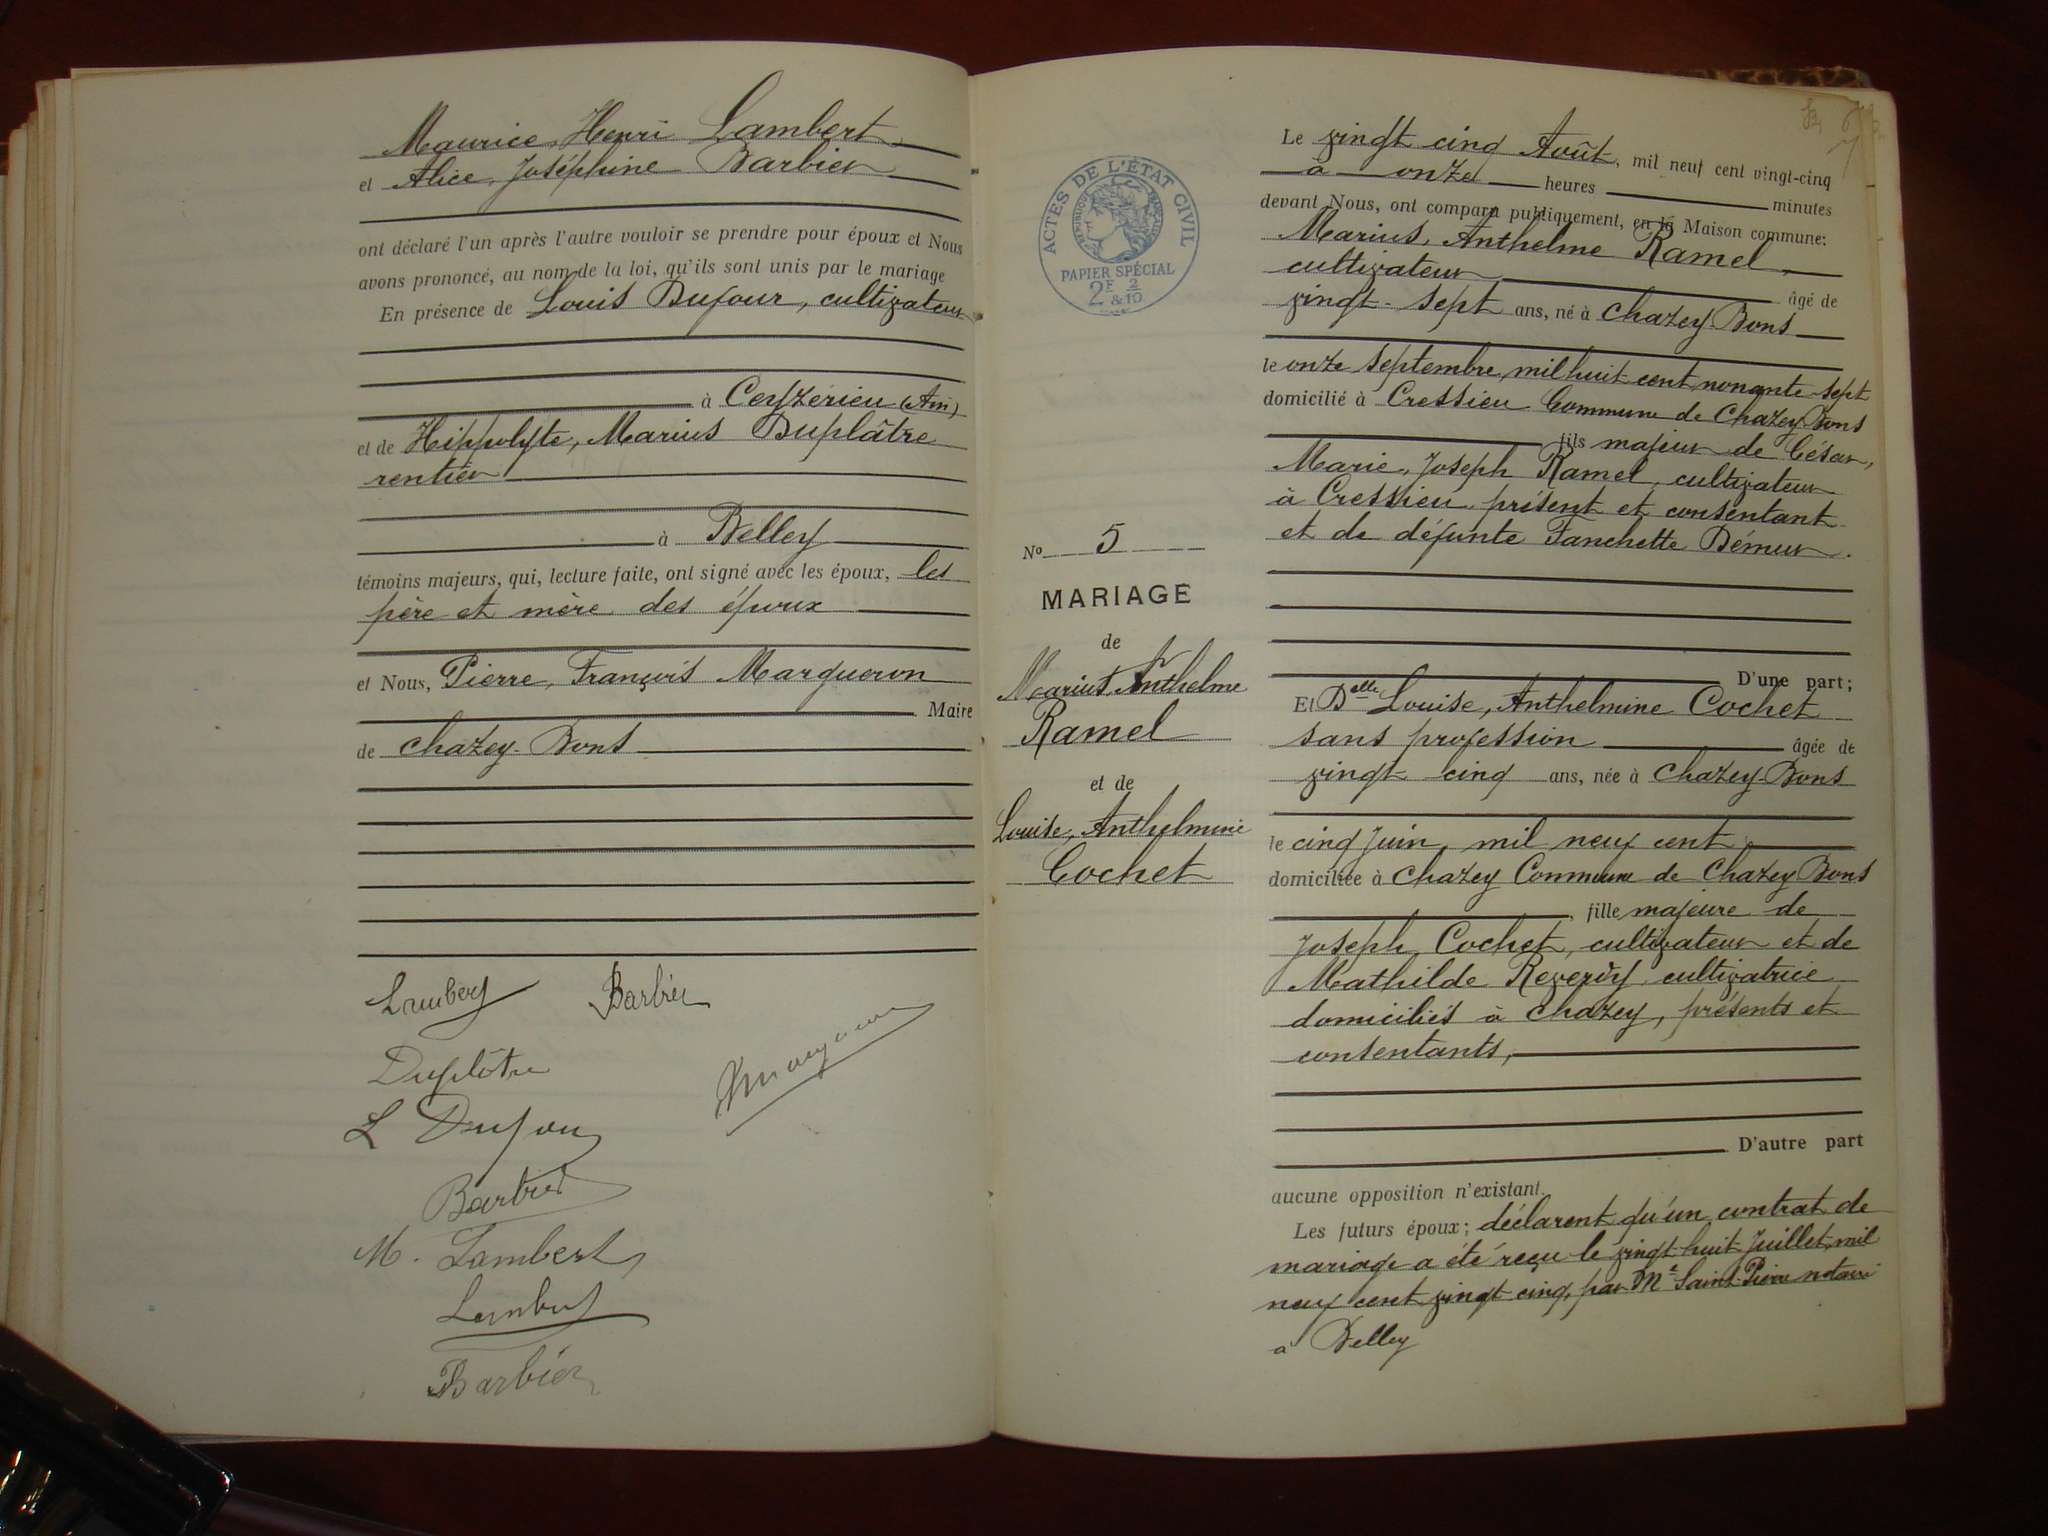 Maurice, Henri Lambert
et Alice, Joséphine Barbier
ont déclaré l'un après l'autre vouloir se prendre pour époux et Nous
avons prononcé, au nom de la loi, qu'ils sont unis par le mariage
En présence de Louis Dufour, cultivateur
à Ceyzérieu (Ain)
et de Hippolyte, Marius Duplâtre
rentier
à Belley
témoins majeurs, qui, lecture faite, ont signé avec les époux, les
père et mère des époux
et Nous, Pierre, François Marqueron
Maire
de Chazey-Bons
Lambert Barbier
Duplâtre
L Dufour
Barbier
M. Lambert
Lambert
Barbier
ACTES DE L'ÉTAT CIVIL
RÉPUBLIQUE FRANÇAISE
PAPIER SPÉCIAL
2F 2
& 10
No 5
MARIAGE
de
Marius, Anthelme
Ramel
et de
Louise, Anthelmine
Cochet
Le vingt cinq Août, mil neuf cent vingt-cinq
à onze heures minutes
devant Nous, ont comparu publiquement, en la Maison commune:
Marius, Anthelme Ramel
cultivateur âgé de
vingt-sept ans, né à Chazey-Bons
le onze septembre, mil huit cent nonante-sept
domicilié à Cressieu Commune de Chazey Bons
fils majeur de César,
Marie, Joseph Ramel, cultivateur
à Cressieu, présent et consentant
et de défunte Fanchette Démeur.
D'une part;
Et Delle Louise, Anthelmine Cochet
sans profession âgée de
vingt cinq ans, née à Chazey-Bons
le cinq Juin, mil neuf cent
domiciliée à Chazey Commune de Chazey Bons
, fille majeure de
Joseph Cochet, cultivateur et de
Mathilde Reverdy, cultivatrice
domiciliés à Chazey, présents et
consentants,
D'autre part
aucune opposition n'existant.
Les futurs époux; déclarent qu'un contrat de
mariage a été reçu le vingt huit Juillet, mil
neuf cent vingt cinq, par Me Saint-Pierre notaire
à Belley